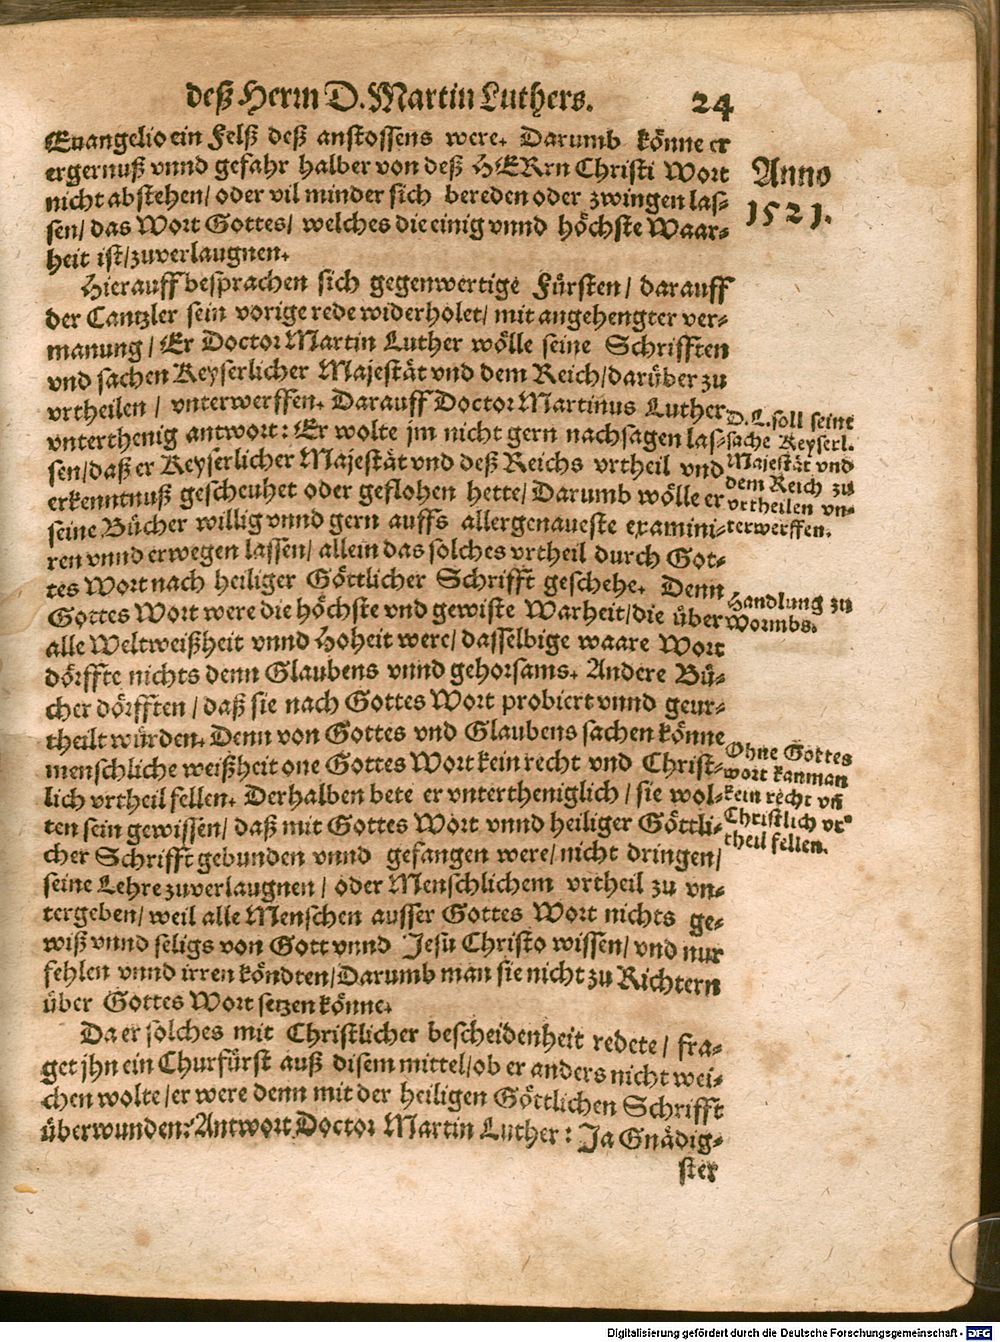 deß Herrn D. Martin Luthers.
24
Euangelio ein Felß deß anstossens were. Darumb könne er
ergernuß vnnd gefahr halber von deß HERrn Christi Wort
nicht abstehen/ oder vil minder sich bereden oder zwingen las-
sen/ das Wort Gottes/ welches die einig vnnd höchste Waar-
heit ist/zuverlaugnen.
Anno
1521.
Hierauff besprachen sich gegenwertige Fürsten/ darauff
der Cantzler sein vorige rede widerholet/ mit angehengter ver-
manung/ Er Doctor Martin Luther wölle seine Schrifften
vnd sachen Keyserlicher Majestät vnd dem Reich/darüber zu
vrtheilen/ vnterwerffen. Darauff Doctor Martinus Luther
vnterthenig antwort: Er wolte jm nicht gern nachsagen las-
sen/daß er Keyserlicher Majestät vnd deß Reichs vrtheil vnd
erkenntnuß gescheuhet oder geflohen hette/ Darumb wölle er
seine Bücher willig vnnd gern auffs allergenaueste examini-
ren vnnd erwegen lassen/ allein das solches vrtheil durch Got-
tes Wort nach heiliger Göttlicher Schrifft geschehe. Denn
Gottes Wort were die höchste vnd gewiste Warheit/die über
alle Weltweißheit vnnd Hoheit were/ dasselbige waare Wort
dörffte nichts denn Glaubens vnnd gehorsams. Andere Bü-
cher dörfften/ daß sie nach Gottes Wort probiert vnnd geur-
theilt würden. Denn von Gottes vnd Glaubens sachen könne
menschliche weißheit one Gottes Wort kein recht vnd Christ-
lich vrtheil fellen. Derhalben bete er vntertheniglich/ sie wol-
ten sein gewissen/ daß mit Gottes Wort vnnd heiliger Göttli-
cher Schrifft gebunden vnnd gefangen were/ nicht dringen/
seine Lehre zuverlaugnen/ oder Menschlichem vrtheil zu vn-
tergeben/ weil alle Menschen ausser Gottes Wort nichts ge-
wiß vnnd seligs von Gott vnnd Jesu Christo wissen/ vnd nur
fehlen vnnd irren köndten/Darumb man sie nicht zu Richtern
über Gottes Wort setzen könne.
D. L. soll seine
sache Keyserl.
Majestät vnd
dem Reich zu
vrtheilen vn-
terwerffen.
Handlung zu
Wormbs.
Ohne Gottes
wort kan man
kein recht vñ
Christlich vr-
theil fellen.
Da er solches mit Christlicher bescheidenheit redete/ fra-
get jhn ein Churfürst auß disem mittel/ob er anders nicht wei-
chen wolte/er were denn mit der heiligen Göttlichen Schrifft
überwunden? Antwort Doctor Martin Luther: Ja Gnädig-
ster
Digitalisierung gefördert durch die Deutsche Forschungsgemeinschaft - DFG